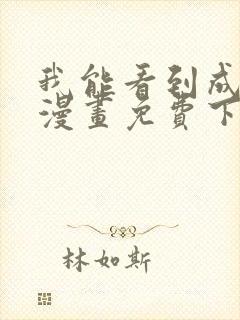 我能看到成
漫畫免費下
林如斯